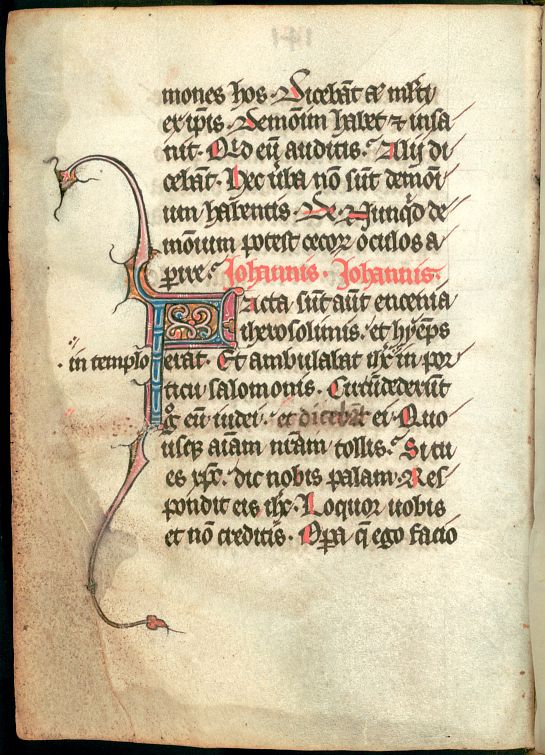 mones hos. Dicebāt aūt ml̄ti
ex ip̄is. Demoīum habet ⁊ insa
nit. Qͥd eū auditis. Alij di
cebāt. Hec ūba nō sūt demoī
um habentis. Nunqͥd de
monium potest cecoꝝ oculos a
ꝑire. Johannis. Johannis.
Facta sūt aūt encenia
iherosolimis. et hyēps
in templo erat. Et ambulabat ih̄c in por
ticu salomonis. Circūdederūt
gͦ eū iudei. et dicebāt ei. Quo
usqꝫ aīam nr̄am tollis. Si tu
es xp̄c. dic nobis palam. Res
pondit eis ih̄c. Loquor uobis
et nō creditis. Oꝑa q̄ ego facio